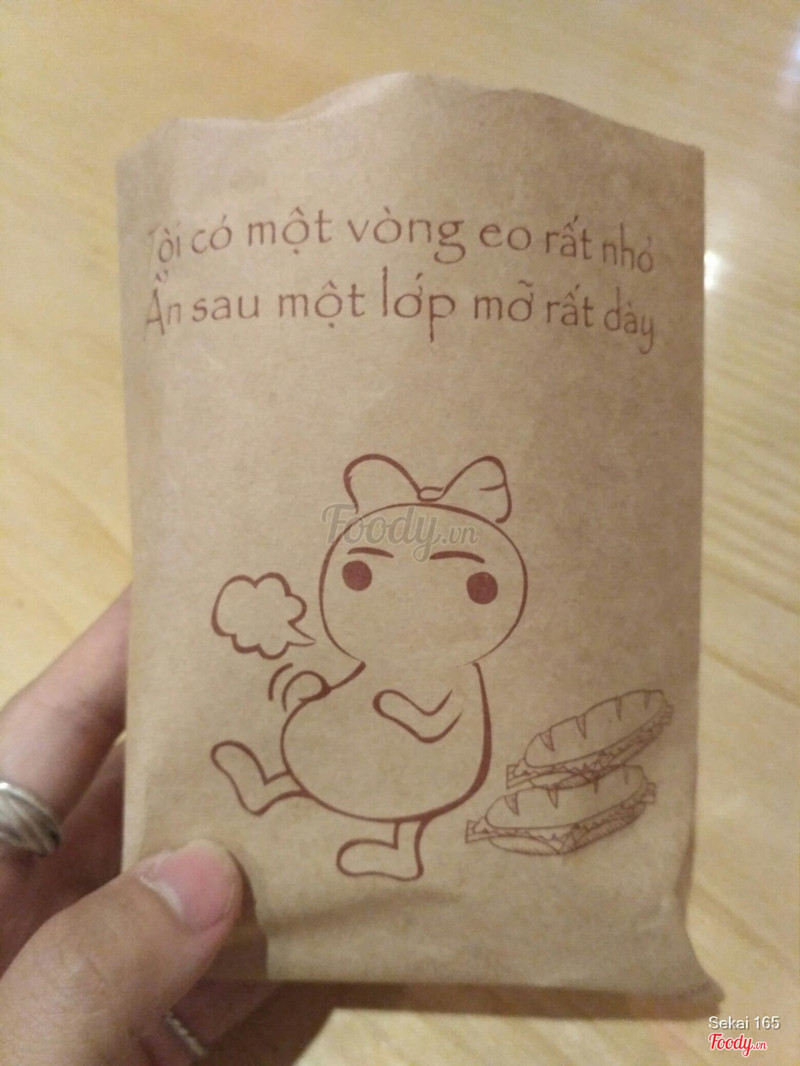 Tôi có một vòng eo rất nhỏ
Ẩn sau một lớp mỡ rất dày
Foody.vn
Sekai 165
Foody.vn